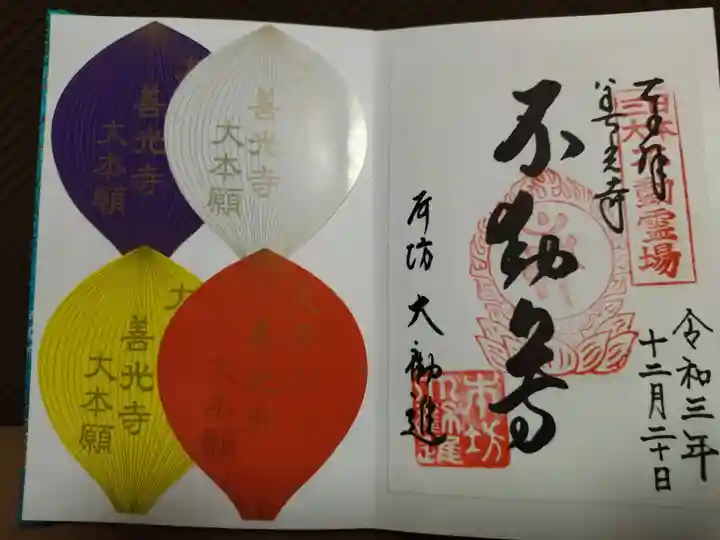 奉拝
善光寺
日本
三大不動霊場
不動尊
本坊 大勧進
令和三年
十二月二十日
本坊
大勧進
善光寺
大本願
善光寺
大本願
善光寺
大本願
善光寺
大本願